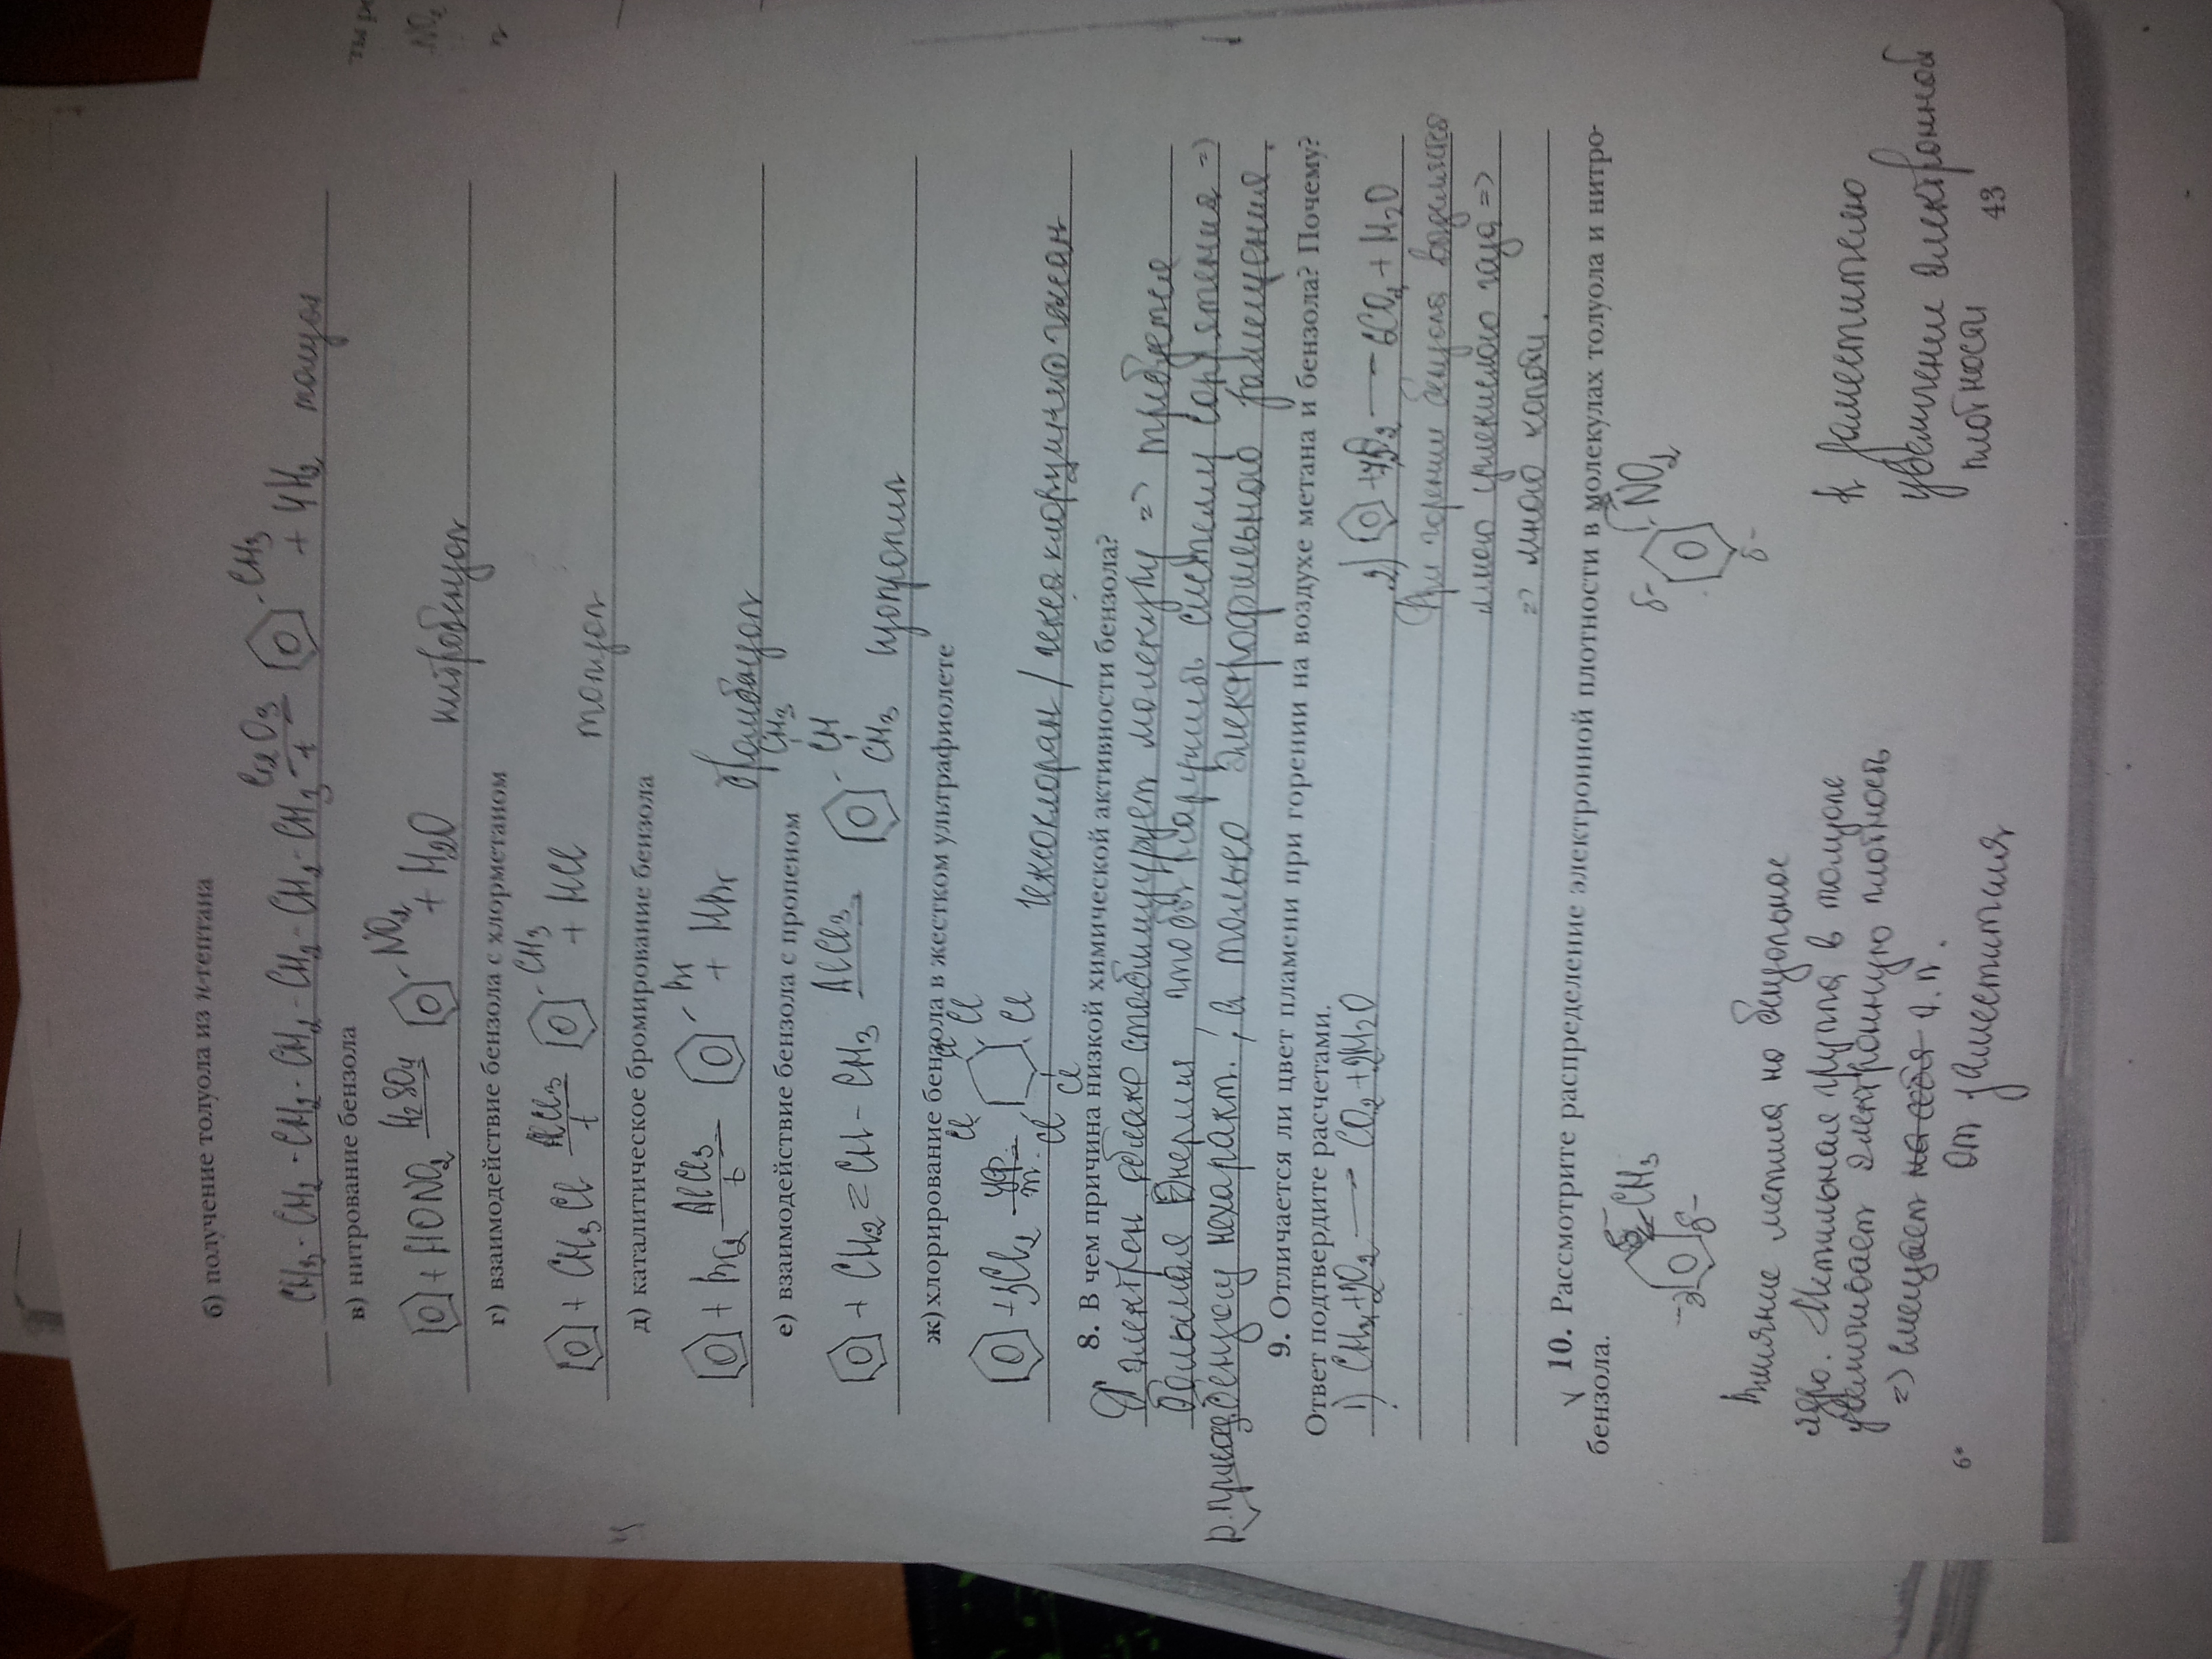 б) получение толуола из н-гептана
CH3-CH2-CH2-CH2-CH2-CH2-CH3 Cr2O3 t CH3 + 4H2 толуол
в) нитрование бензола
+ HONO2 H2SO4 NO2 + H2O нитробензол
г) взаимодействие бензола с хлорметаном
+ CH3Cl AlCl3 t CH3 + HCl толуол
д) каталитическое бромирование бензола
+ Br2 AlCl3 t Br + HBr бромбензол
е) взаимодействие бензола с пропеном
+ CH2=CH-CH3 AlCl3 CH3 CH CH3
ж) хлорирование бензола в жестком ультрафиолете
+3Cl2 Cl Cl Cl Cl Cl Cl гексахлорциклогексан
8. В чем причина низкой химической активности бензола?
электрон облако стабилизирует молекулу => требуется
большая энергия чтобы нарушить систему сопряжения =>
бензолу нехаракт., а только электрофильное замещение.
9. Отличается ли цвет пламени при горении на воздухе метана и бензола? Почему?
Ответ подтвердите расчетами.
1) CH4+2O2 → CO2+2H2O
2) → 6CO2 + H2O
При горении бензола
много углекислого газа =>
=> много копоти.
√ 10. Рассмотрите распределение электронной плотности в молекулах толуола и нитро-
бензола.
CH3 δ-
NO2 δ- δ-
Влияние метила на бензольное
ядро. Метильная группа в толуоле
увеличивает электронную плотность
=> смещает
от заместителя
к заместителю
электронной
плотности
6*
43